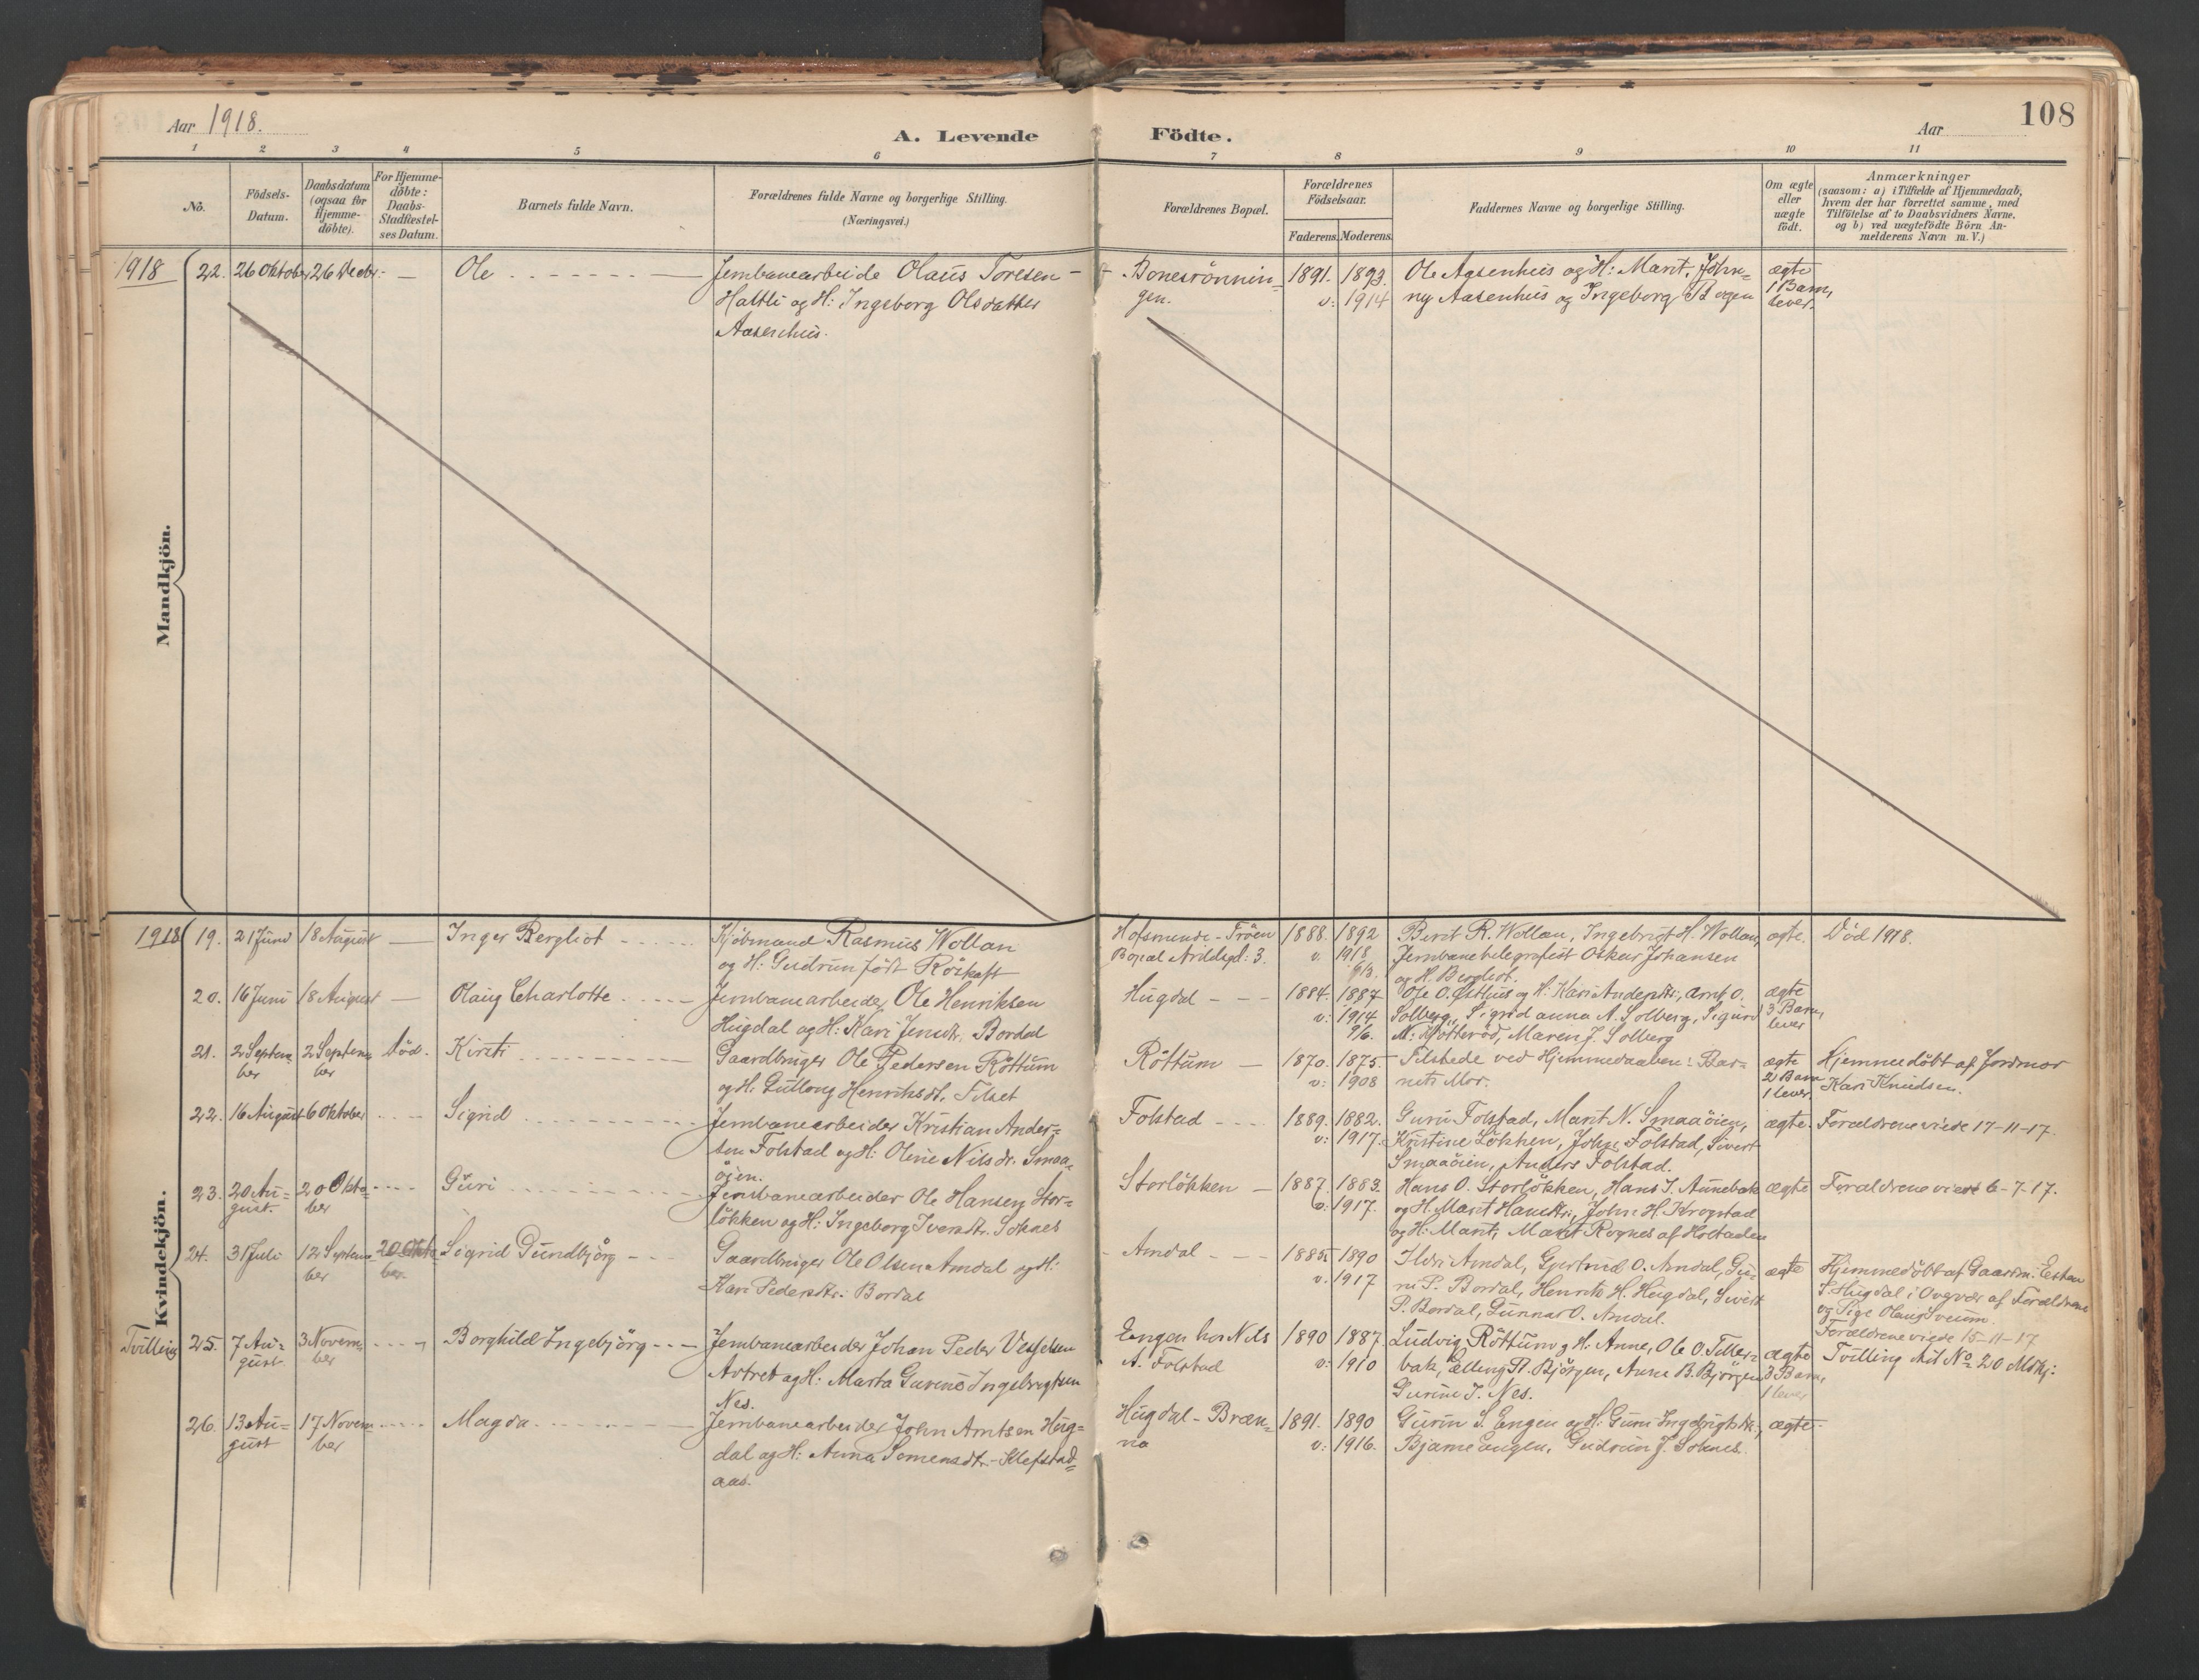 Aar 1918.
A. Levende Födte.
Aar
108
1 2 3 4 5 6 7 8 9 10 11
No.
Födsels-
Datum.
Daabsdatum
(ogsaa for
Hjemme-
döbte).
For Hjemme-
döbte:
Daabs-
Stadfæstel-
ses Datum.
Barnets fulde Navn.
Forældrenes fulde Navne og borgerlige Stilling.
(Næringsvei.)
Forældrenes Bopæl.
Forældrenes
Födselsaar.
Faderens. Moderens.
Faddernes Navne og borgerlige Stilling.
Om ægte
eller
uægte
födt.
Anmærkninger
(saasom: a) i Tilfælde af Hjemmedaab,
hvem der har forrettet samme, med
Tilföielse af to Daabsvidners Navne.
og b) ved uægtefödte Börn An-
melderens Navn m. V.)
Mandkjön.
1918 22. 26 Oktober 26 Decbr. —
Ole
Jernbanearbeide Olaus Toresen
Haltli og H: Ingeborg Olsdatter
Aasenhus.
Bonesrönnin-
gen.
1891. 1893.
v: 1914
Ole Aasenhus og H: Marit, John-
ny Aasenhus og Ingeborg Bogen
ægte
1 Barn,
lever.
Kvindekjön.
1918 19. 21 Juni 18 August —
Inger Bergliot
Kjöbmand Rasmus Wollan
og H: Gudrun födt Röskaft
Hofsmunde-Tröen
1888. 1892
v. 1918
6/3.
Berit R. Wollan, Ingebrigt H. Wollan,
Jernbanetelegrafist Oskar Johansen
og H. Bergliot.
ægte.
Död 1918.
20. 16 Juni 18 August —
Olaug Charlotte
Jernbanearbeider Ole Henriksen
Hugdal og H: Kari Jensdtr. Bordal
Hugdal
1884. 1887
v: 1914
9/6.
Solberg, Sigrid Anna A. Solberg, Sigurd
Maren J. Solberg
ægte
3 Barn,
lever
21. 2 Septem-
ber
2 Septem-
ber
död.
Kirsti
Gaardbruger Ole Pedersen Röttum
og H: Gullaug Henriksdt. Tilset
Röttum
1870. 1875
v: 1908
Tilstede ved Hjemmedaaben: Bar-
nets Mor.
ægte
2 Barn
1 lever.
Hjemmedöbt af Jordmor
Kari Knudsen.
22. 16 August 6 Oktober
Sigrid
Jernbanearbeider Kristian Ander-
sen Folstad og H: Oline Nilsdr. Smaa-
öien.
Folstad
1889. 1882.
v: 1917.
Guru Folstad, Marit N. Smaaöien,
Kristine Lökken, John Folstad, Sivert
Smaaöien, Anders Folstad.
ægte.
Forældrene viede 17-11-17.
23. 20 Au-
gust.
20 Okto-
ber
Guri
Jernbanearbeider Ole Hansen Stor-
lökken og H: Ingeborg Iversdtr. Soknes
Storlökken
1887. 1883.
v: 1917.
Hans O. Storlökken, Hans J. Aunebak
og H: Marit Hansdtr., John H. Krogstad
og H: Marit, Marit Rognes af Holtaalen
ægte
Forældrene viet 6-7-17.
24. 31 Juli
12 Septem-
ber
20 Okto-
ber
Sigrid Gundbjörg
Gaardbruger Ole Olsen Amdal og H:
Kari Pedersdtr. Bordal
Amdal
1885 1890
v. 1917
Ildri Amdal, Gjertrud O. Amdal, Gu-
ru P. Bordal, Henrik H. Hugdal, Sivert
P. Bordal, Gunnar O. Amdal.
ægte
Hjemmedöbt af Gaardm. Esten
S. Hugdal i Overvær af Forældrene
og Pige Olaug Sveum.
Forældrene viede 15-11-17
Tvilling 25. 7 Au-
gust
3 Novem-
ber
Borghild Ingebjörg
Jernbanearbeider Johan Peder Vesselsen
Avtret og H: Marta Gurine Ingebrigtsen
Nes.
Engen hos Nils
A. Folstad
1890 1887.
v: 1910
Ludvig Röttum og H: Anne, Ole O. Tiller-
bak, Elling St. Björgen, Anne B. Björgen
Gurine J. Nes.
ægte
3 Barn,
1 lever
Tvilling til No 20 Mdkj:
26. 13 Au-
gust
17 Novem-
ber
Magda
Jernbanearbeider John Arntsen Hug-
dal og H: Anna Simensdtr. Klefstad-
aas.
Hugdal-Bræn-
na
1891. 1890
v: 1916.
Gurin S. Engen og H: Guru Ingebrigtsdtr.,
Bjarne Engen, Gudrun J. Soknes.
ægte